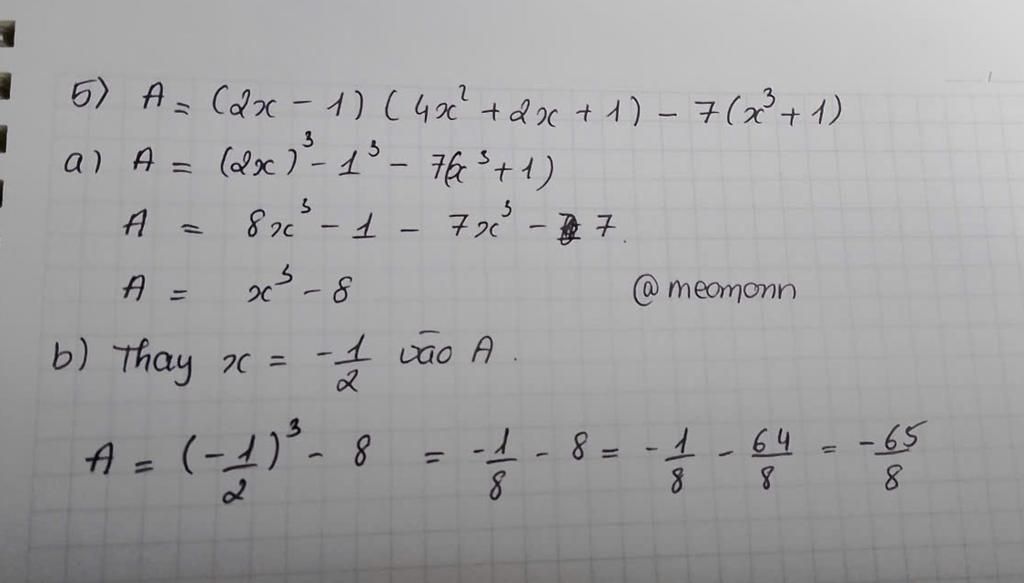 5) A = (2x - 1) (4x² + 2x + 1) - 7(x³ + 1)
a) A = (2x)³ - 1³ - 7(x³ + 1)
A = 8x³ - 1 - 7x³ - 7.
A = x³ - 8
@meomonn
b) Thay x = -1/2 vào A.
A = (-1/2)³ - 8 = -1/8 - 8 = -1/8 - 64/8 = -65/8